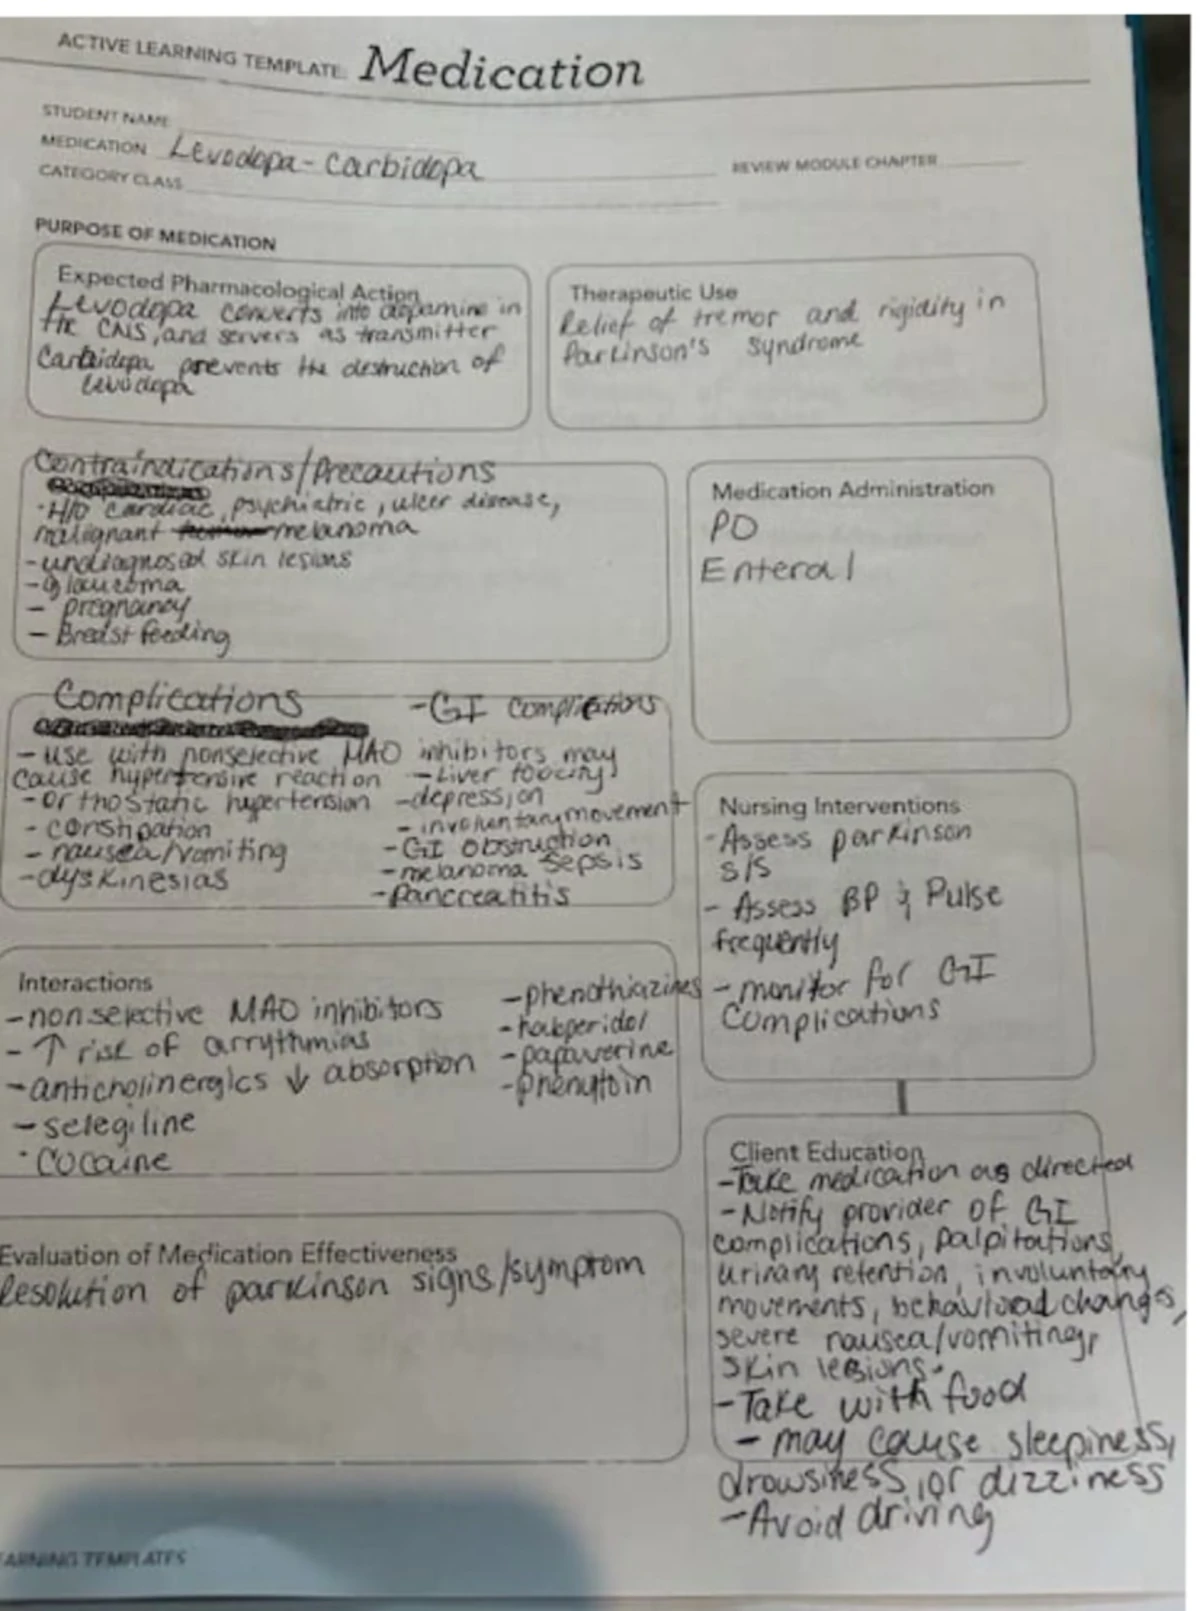 ACTIVE LEARNING TEMPLATE: Medication
STUDENT NAME
MEDICATION Levodopa-Carbidopa
REVIEW MODULE CHAPTER
CATEGORY CLASS
PURPOSE OF MEDICATION
Expected Pharmacological Action
Levodopa converts into dopamine in
the CNS, and servers as transmitter
Carbidopa prevents the destruction of
levodopa
Therapeutic Use
Relief of tremor and rigidity in
Parkinson's syndrome
Contraindications/Precautions
·H/O cardiac, psychiatric, ulcer disease,
malignant melanoma
-undiagnosed skin lesions
-glaucoma
- pregnancy
- Breast feeding
Medication Administration
PO
Enteral
Complications
- use with nonselective MAO inhibitors may
cause hypertensive reaction
-orthostatic hypertension
- constipation
- nausea/vomiting
-dyskinesias
-GI complications
-Liver toxicity
-depression
- involuntary movement
-GI obstruction
-melanoma sepsis
-Pancreatitis
Nursing Interventions
-Assess parkinson
s/s
- Assess BP & Pulse
frequently
- monitor for GI
Complications
Interactions
-nonselective MAO inhibitors
- ↑ risk of arrythmias
-anticholinergics ↓ absorption
- selegiline
· cocaine
-phenothiazines
-haloperidol
-papaverine
-phenytoin
Client Education
-Take medication as directed
-Notify provider of GI
complications, palpitations,
urinary retention, involuntary
movements, behavioral changes,
severe nausea/vomiting,
skin lesions.
-Take with food
- may cause sleepiness,
drowsiness, or dizziness
-Avoid driving
Evaluation of Medication Effectiveness
Resolution of parkinson signs/symptom
EARNING TEMPLATES